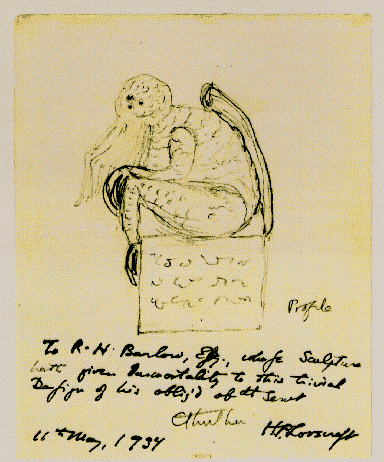 Profile
To R. H. Barlow, Esq., whose Sculpture
hath given Immortality to this trivial
Design of his oblig'd obt Servt
Cthulhu
HPLovecraft
11th May, 1934